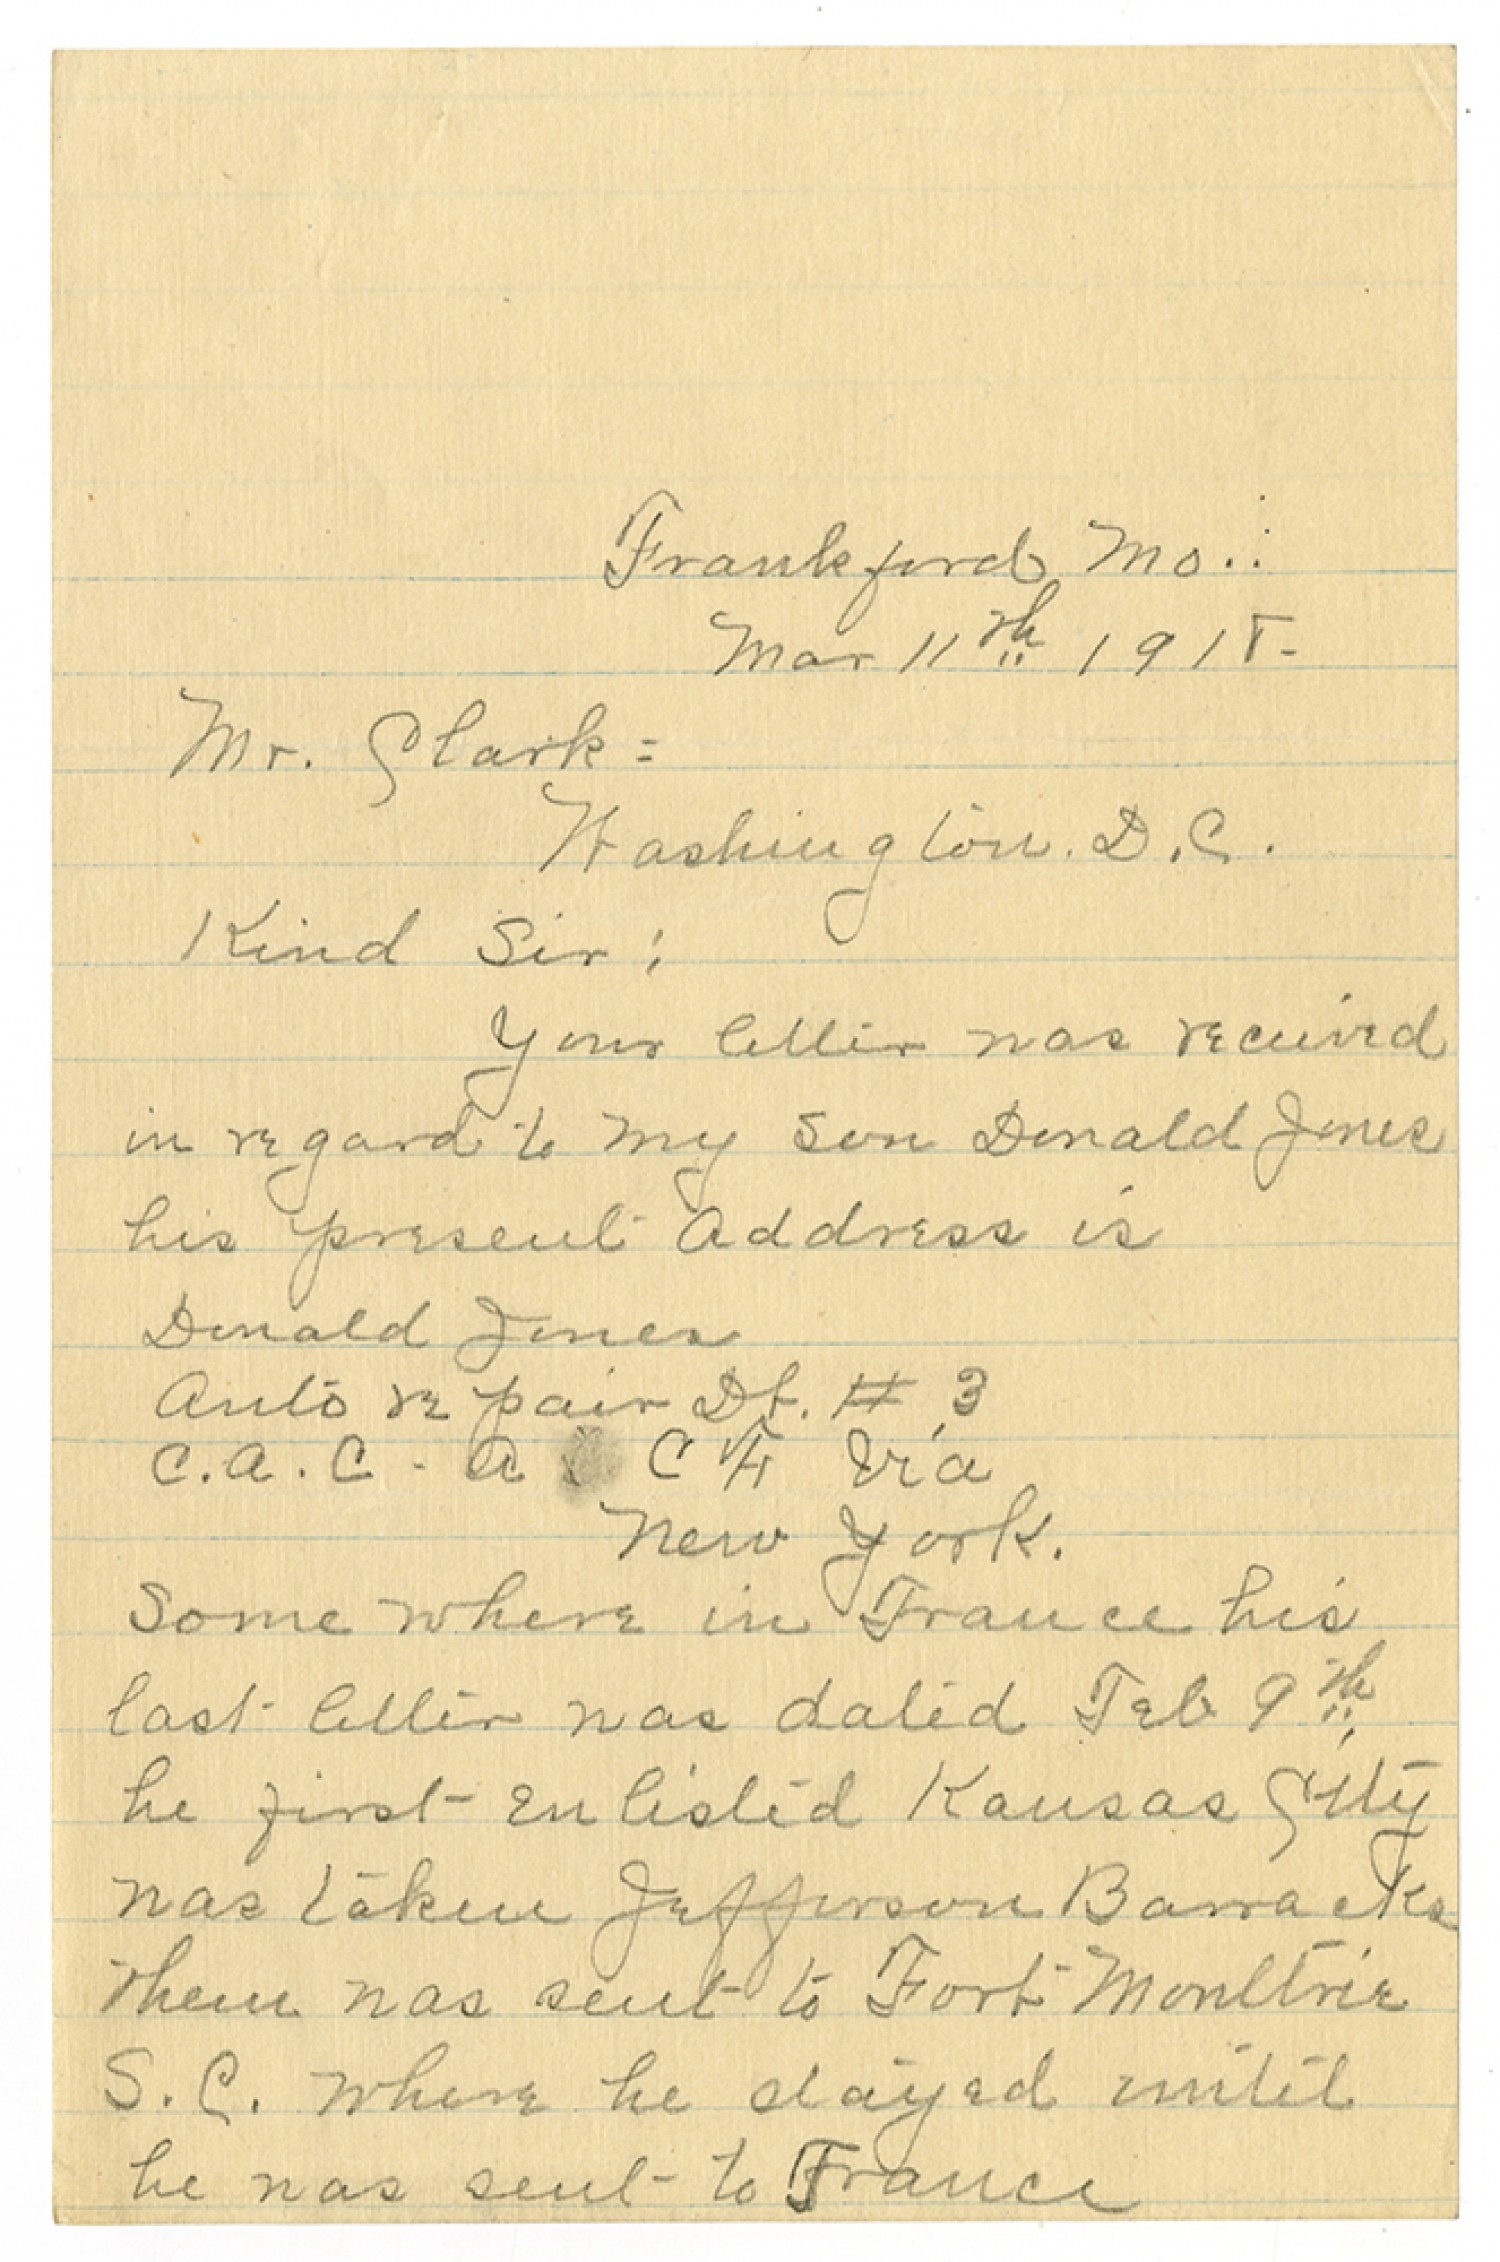 Frankford Mo.
Mar 11th 1918
Mr. Clark =
Washington. D.C.
Kind Sir:
Your letter was received
in regard to my Son Donald Jones
his present Address is
Donald Jones
Auto repair Dt. # 3
C.A.C. A C F Via
New York.
Some where in France his
last letter was dated Feb 9th
he first enlisted Kansas City
was taken Jefferson Barracks
then was sent to Fort Moultrie
S.C. where he stayed until
he was sent to France